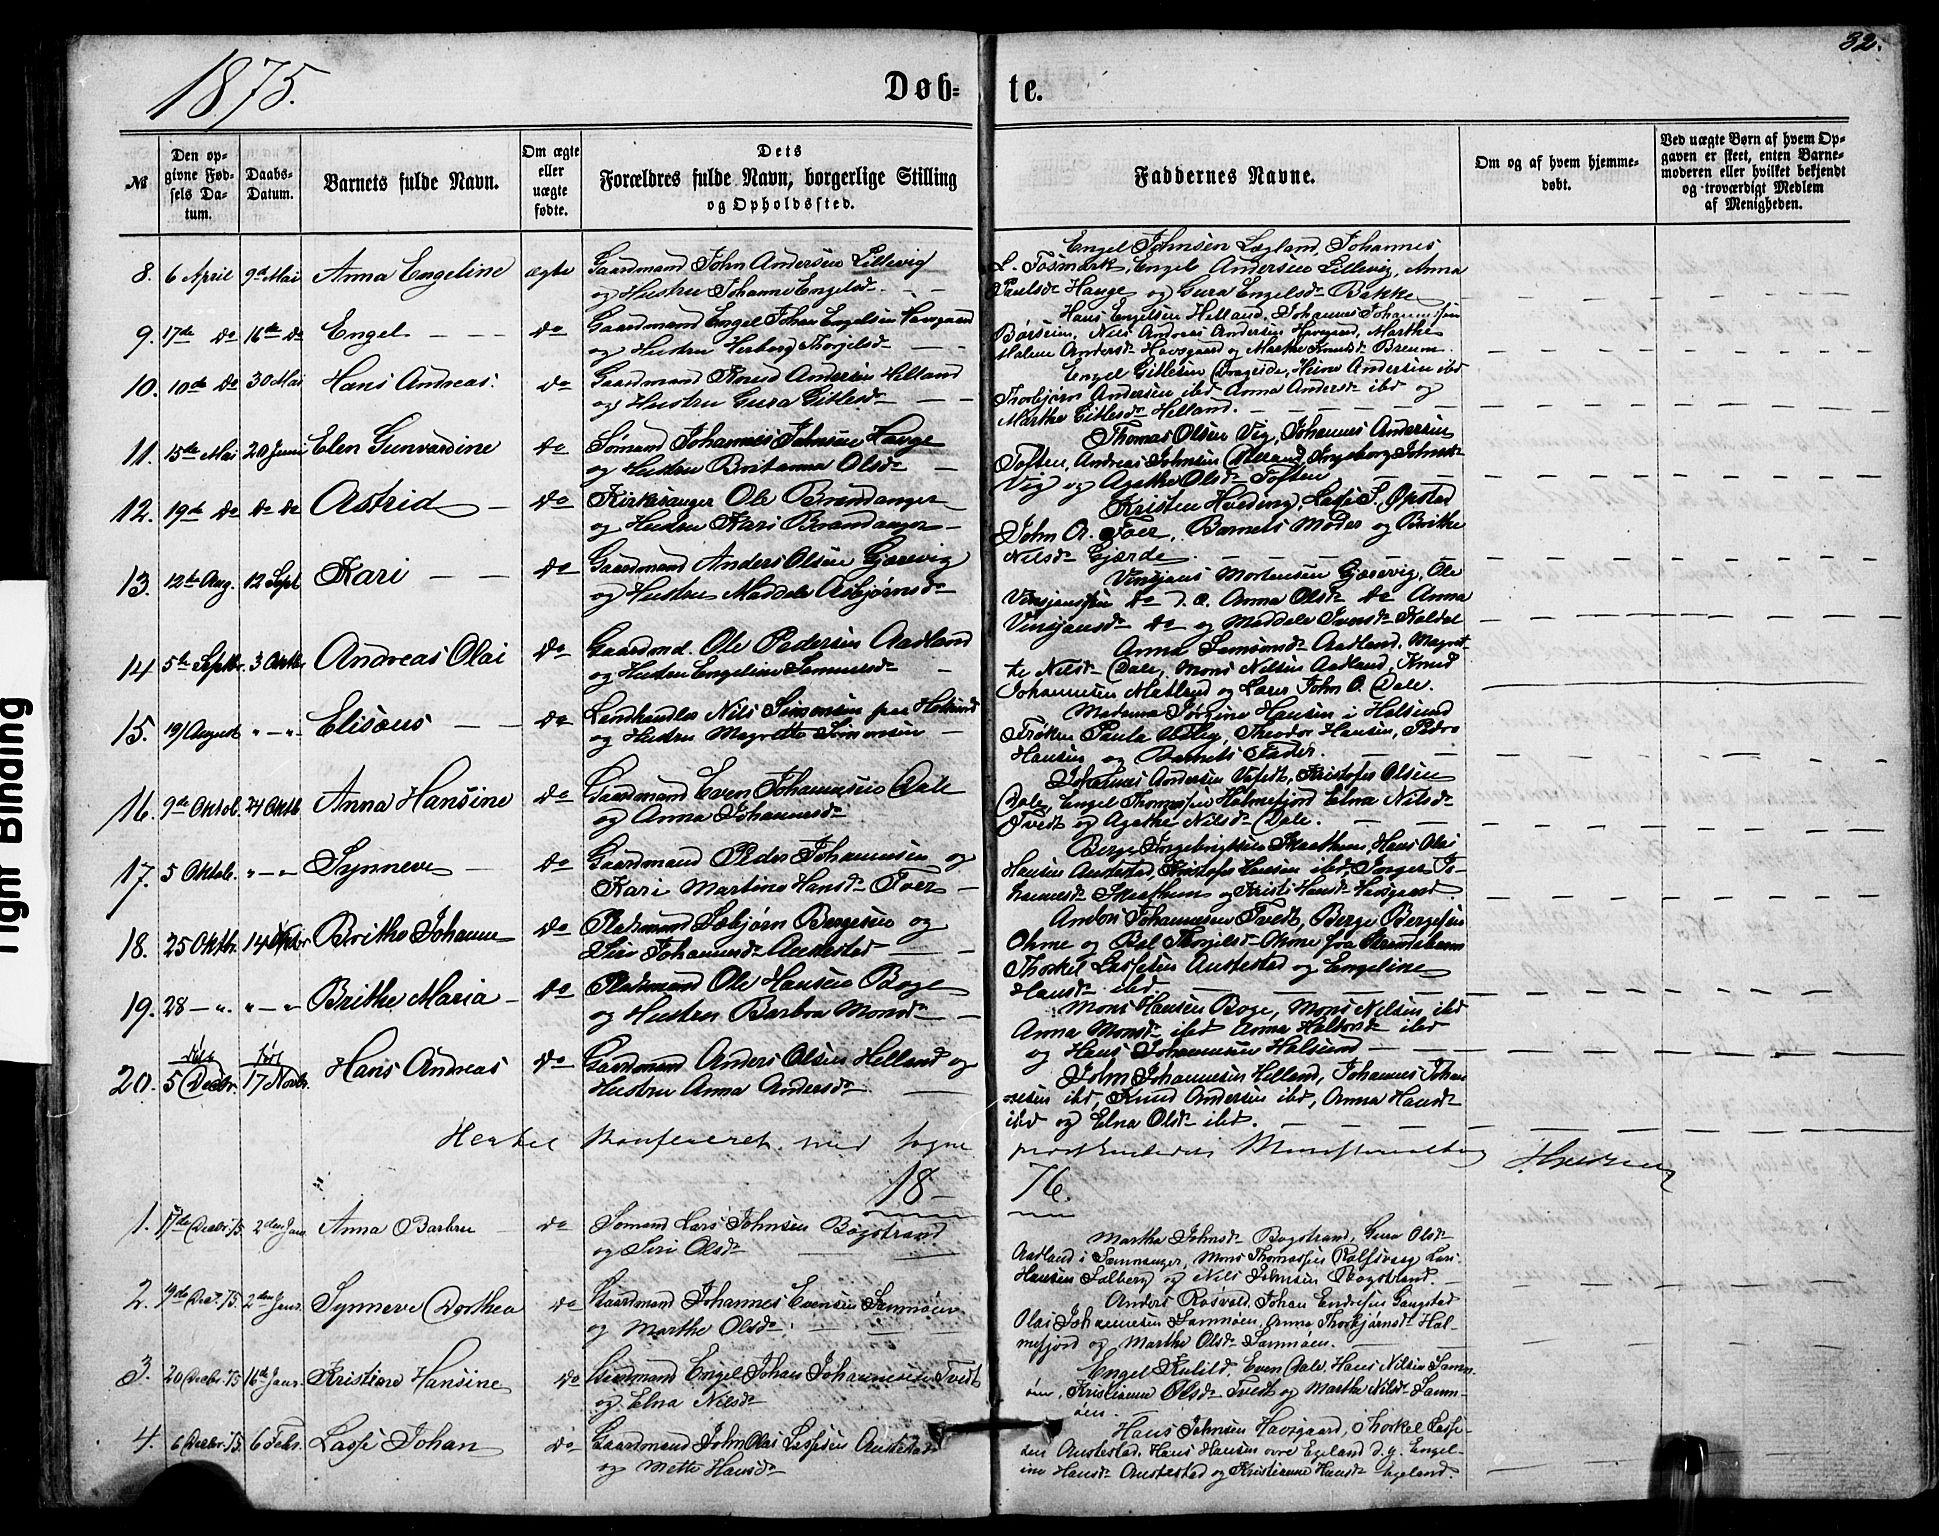 32.
1875.
Døb= te.
№ Den op=givne Fød=sels Da=tum. Daabs=Datum. Barnets fulde Navn. Om ægte eller uægte fødte. Dets Forældres fulde Navn, borgerlige Stilling og Opholdssted. Faddernes Navne. Om og af hvem hjemme=døbt. Ved uægte Børn af hvem Op=gaven er skeet, enten Barne=moderen eller hvilket bekjendt og troværdigt Medlem af Menigheden.
8. 6 April 9de Mai Anna Engeline ægte Gaardmand John Andersen Lillevig
og Hustru Johanne Engelsdr
Engel Johnsen Lægland, Johannes
L. Tosmark, Engel Andersen Lillevig, Anna
Paulsdr Hauge og Gura Engelsdr Bakke
9. 17de do 16de do Engel do Gaardmand Engel Johan Engelsen Havgaard
og Hustru Herborg Thorgilsdr
Hans Engelsen Helland, Johannes Johannesen
Børseim, Nils Andreas Andersen Havgaard, Marthe
Malene Andersdr Havsgaard og Marthe Knudsdr Breum
10. 10de do 30 Mai Hans Andreas do Gaardmand Knud Andersen Helland
og Hustru Gura Gitlesdr
Engel Gitlesen Drageide, Heine Andersen ibd
Thorbjørn Andersen ibd Anna Andersdr ibd og
Marthe Gitlesdr Helland.
11. 15de Mai 20 Juni Elen Gunvardine do Sømand Johannes Johnsen Hauge
og Hustru Britanna Olsdr
Thomas Olsen Vig, Johannes Andersen
Toften, Andreas Johnsen Ingeborg Johnsdr
Vig og Agathe Olsdr Toften
12. 19de do do do Astrid do Kirkesanger Ole Brandanger
og Hustru Kari Brandanger
Kristen Hveding, Lasse T. Opstad
John A. Toer, Barnets Moder og Brithe
Nilsdr Gjærde
13. 12te Aug. 12 Sept Kari do Gaardmand Anders Olsen Gjærevig
og Hustru Maddele Asbjørnsdr
Vinsjans Mortensen Gjærevig, Ole
Vinsjansen do Anna Olsdr do Anna
Vinsjansdr do og Maddele Ivansdr Koldal
14. 5te Septbr. 3 Oktbr Andreas Olai do Gaardmd. Ole Pedersen Aadland
og Hustru Engeline Samuelsdr
Anna Samsonsdr Aadland, Magret-
te Nilsdr Dale, Mons Nilsen Aadland, Knud
Johannesen Matland og Lærer John O. Dale.
15. 19/August " - " Elisæus do Landhandler Nils Simonsen paa Holsund
og Hustru Magrette Simonsen
Madame Jørgine Hansen i Holsund
Frøken Paula Theodor Hansen, Pedro
Hansen og Barnets Fader.
16. 9de Oktob. 24 Oktb Anna Hansine do Gaardmand Even Johannesen Dale
og Anna Johannesdr
Johannes Andersen Tvedt, Kristofer Olsen
Dale, Engel Thomassen Holmefjord Elna Nilsdr
Tvedt og Agathe Nilsdr Dale.
17. 5 Oktob. " - " Synneve do Gaardmand Peder Johannesen og
Kari Martine Hansdr Tver
Berge Ingebrigtsen Skaathun, Hans Olai
Hansen Austestad, Kristofer Hansen ibd, Inger Jo-
hannesdr Skaathun og Kristi Hansdr Havsgaard
18. 25 Oktbr. 14 Brithe Johanne do Pladsmand Asbjørn Bergesen og
Siri Johannesdr Austestad
Andors Johannesen Tvedt, Berge Bergesen
Ohme og Thorgilsdr Ohme fra Strandebarm
Thorkel Lassesen Austestad og Engeline
Hansdr ibd
19. 28 - " " - " Brithe Maria do Pladsmand Ole Hansen Boge
og Hustru Barbra Monsdr
Mons Hansen Boge, Mons Nilsen ibd
Anna Monsdr ibd Anna Halvorsdr ibd
og Hans Johannesen Holsund
20. 5 Decbr. 17 Novbr. Hans Andreas do Gardmand Anders Olsen Helland og
Hustru Anna Andersdr
John Johannesen Helland, Johannes Johan-
nesen ibd, Knud Andersen ibd, Anna Hansdr
ibd og Elna Olsdr ibd.
Konfereret med Sogne
præstembedets Ministerialbog Hvidding
18 - 76.
1. 17de Decbr 75 2den Jan Anna Barbru do Sømand Lars Johnsen Bogstrand
og Siri Olsdr
Martha Johnsdr Bogstrand, Gura Olsdr
Aadland i Samnanger, Mons Thomassen Rolfsvaag Lars
Hansen Solberg og Nils Johnsen Bogstrand.
2. 19de Dec. 75. 2den Jan. Synneve Dorthea do Gaardmand Johannes Evensen Samnøen
og Marthe Olsdr
Anders Røsvold, Johan Endresen Gangstad
Olai Johannesen Samnøen, Anna Thorbjørnsdr Hol-
mefjord og Marthe Olsdr Samnøen.
3. 20 Decbr 75 16de Janr Kristiane Hansine do Gardmand Engel Johan Johannesen Tvedt
og Elna Nilsdr
Engel Kulild, Even Dale, Hans Nilsen Samn-
øen, Kristianne Olsdr Tvedt og Marthe Nilsdr Samn-
øen.
4. 6 Decbr 75 6 Febr. Lasse Johan do Gaardmand John Olai Lassesen Austestad
og Mette Hansdr
Hans Johnsen Havsgaard, Thorkel Lasse-
sen Austestad, Hans Hansen øvre Egeland d. y. Engel-
ine Hansdr Austestad og Kristianne Hansdr Egeland.
Tight Binding